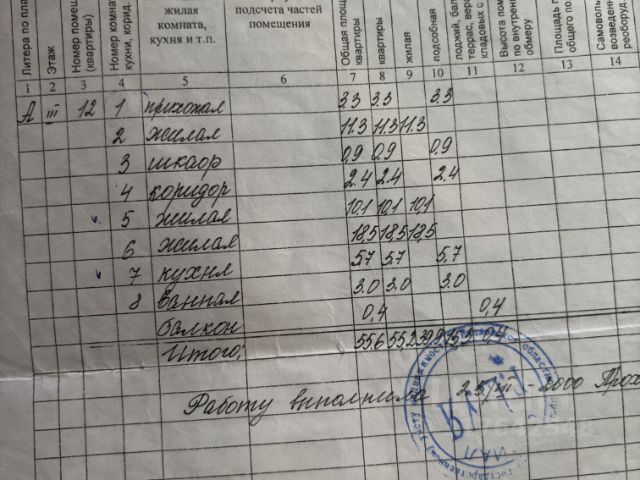 Литера по пла
Этаж
Номер помещ
(квартиры)
Номер комнат
кухни, корид.
жилая
комната,
кухня и т.п.
подсчета частей
помещения
Общая площ
квартиры
квартиры
жилая
подсобная
лоджий, бал
террас, вера
кладовых с
Высота пом
по внутрен
обмеру
Площадь п
общего по
Самоволь
возведенн
реоборуд
1 2 3 4 5 6 7 8 9 10 11 12 13 14
А III 12 1 прихожая 3.3 3.3 3.3
2 жилая 11.3 11.3 11.3
3 шкаф 0,9 0,9 0,9
4 коридор 2.4 2.4 2.4
5 жилая 10,1 10,1 10,1
6 жилая 18,5 18,5 18,5
7 кухня 5.7 5.7 5,7
8 ванная 3.0 3.0 3.0
балкон 0,4 0,4
Итого: 55,6 55,2 39,9 15,3 0,4
Работу выполнила 2000 Прох